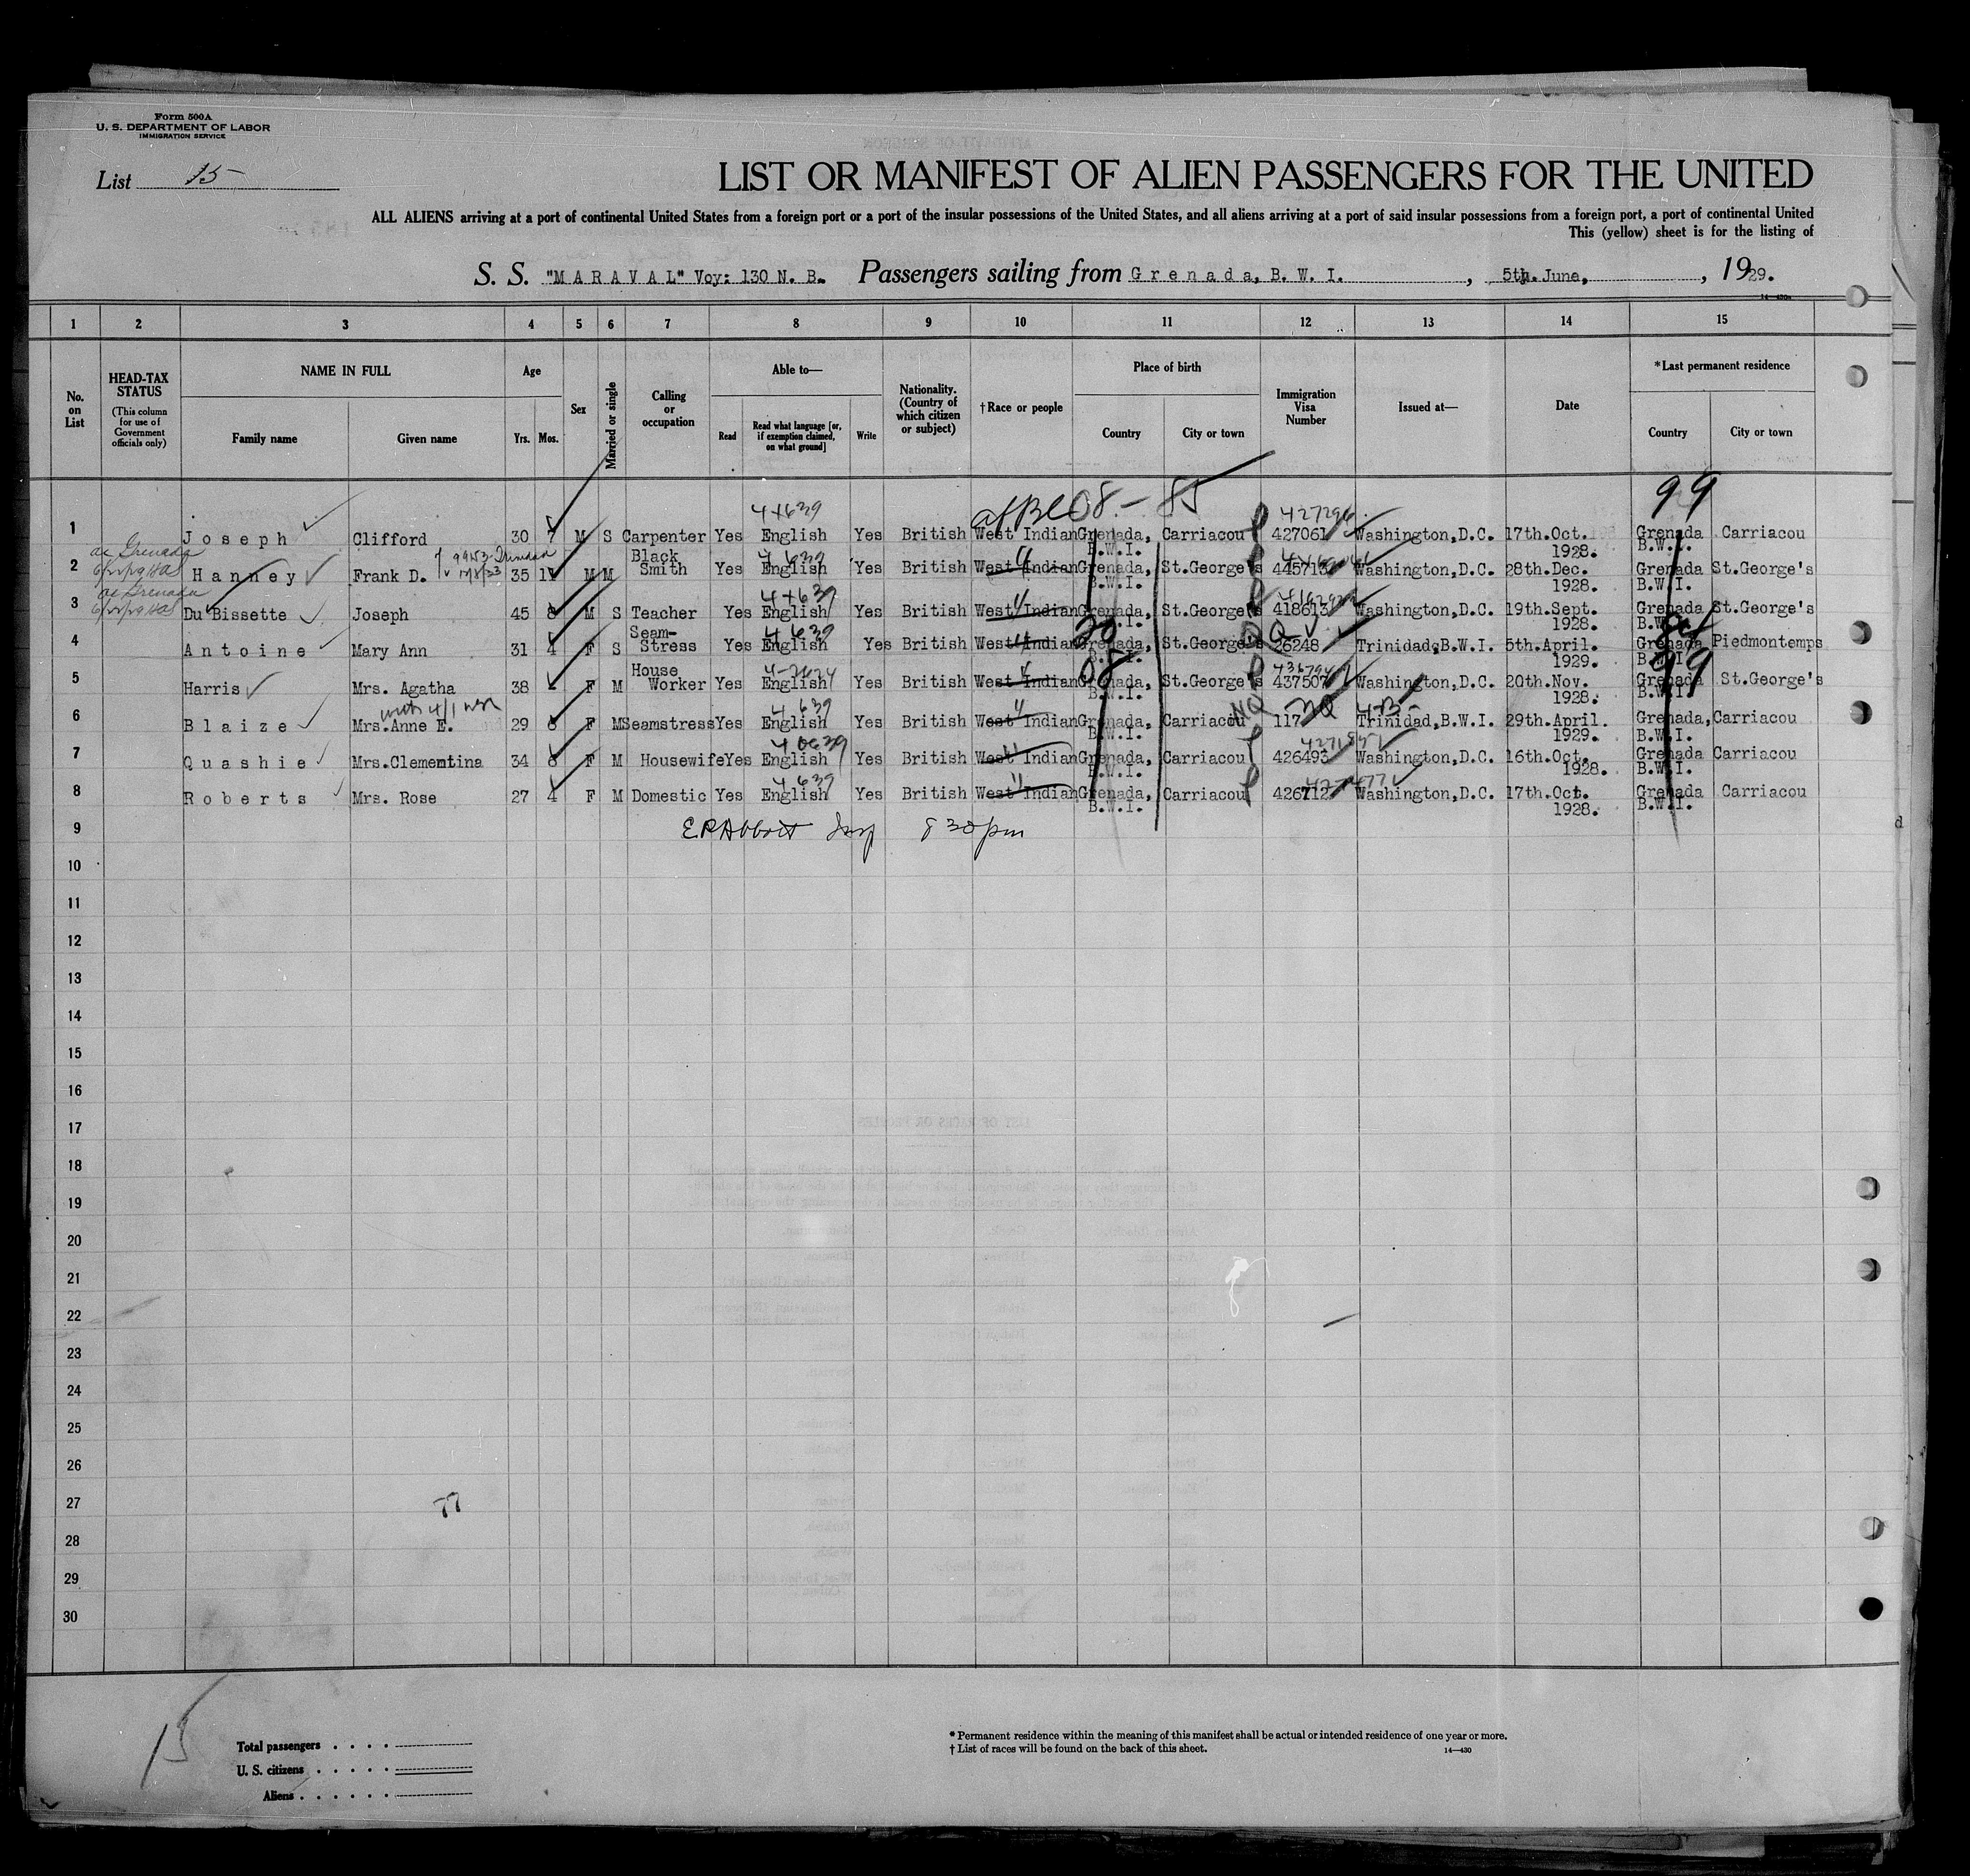 Form 500A
U. S. DEPARTMENT OF LABOR
IMMIGRATION SERVICE
List 15
LIST OR MANIFEST OF ALIEN PASSENGERS FOR THE UNITED
ALL ALIENS arriving at a port of continental United States from a foreign port or a port of the insular possessions of the United States, and all aliens arriving at a port of said insular possessions from a foreign port, a port of continental United
This (yellow) sheet is for the listing of
S. S. "M A R A V A L" Voy: 130 N. B. Passengers sailing from G r e n a d a, B. W. I. , 5th. June, , 1929.
14—430a
1 2 3 4 5 6 7 8 9 10 11 12 13 14 15
No. on List
HEAD-TAX STATUS
(This column for use of Government officials only)
NAME IN FULL
Family name Given name
Age
Yrs. Mos.
Sex
Married or single
Calling or occupation
Able to—
Read
Read what language [or, if exemption claimed, on what ground]
Write
Nationality. (Country of which citizen or subject)
†Race or people
Place of birth
Country City or town
Immigration Visa Number
Issued at—
Date
*Last permanent residence
Country City or town
08 - 85 99
1 J o s e p h Clifford 30 7 M S Carpenter Yes English Yes British West Indian Grenada, B.W.I. Carriacou 427061 Washington,D.C. 17th.Oct. 1928. Grenada B.W.I. Carriacou
2 H a n n e y Frank D. 35 M M Black Smith Yes English Yes British West Indian Grenada, B.W.I. St.George's 445713 Washington,D.C. 28th.Dec. 1928. Grenada B.W.I. St.George's
3 Du Bissette Joseph 45 8 M S Teacher Yes English Yes British West Indian Grenada, B.W.I. St.George's 418613 Washington,D.C. 19th.Sept. 1928. Grenada B.W.I. St.George's
4 A n t o i n e Mary Ann 31 4 F S Seam- Stress Yes English Yes British West Indian Grenada, B.W.I. St.George's 26248 Trinidad,B.W.I. 5th.April. 1929. Grenada B.W.I. Piedmontemps
5 Harris Mrs. Agatha 38 - F M House Worker Yes English Yes British West Indian Grenada, B.W.I. St.George's 437507 Washington,D.C. 20th.Nov. 1928. Grenada B.W.I. St.George's
6 B l a i z e Mrs.Anne E. 29 8 F M Seamstress Yes English Yes British West Indian Grenada, B.W.I. Carriacou 117 Trinidad,B.W.I. 29th.April. 1929. Grenada, B.W.I. Carriacou
7 Q u a s h i e Mrs.Clementina 34 6 F M Housewife Yes English Yes British West Indian Grenada, B.W.I. Carriacou 426493 Washington,D.C. 16th.Oct. 1928. Grenada B.W.I. Carriacou
8 R o b e r t s Mrs. Rose 27 4 F M Domestic Yes English Yes British West Indian Grenada, B.W.I. Carriacou 426712 Washington,D.C. 17th.Oct. 1928. Grenada B.W.I. Carriacou
9 E R Abbott Insp 8 30 pm
10
11
12
13
14
15
16
17
18
19
20
21
22
23
24
25
26
27
77
28
29
30
15
Total passengers
U. S. citizens
Aliens
* Permanent residence within the meaning of this manifest shall be actual or intended residence of one year or more.
† List of races will be found on the back of this sheet.
14—430